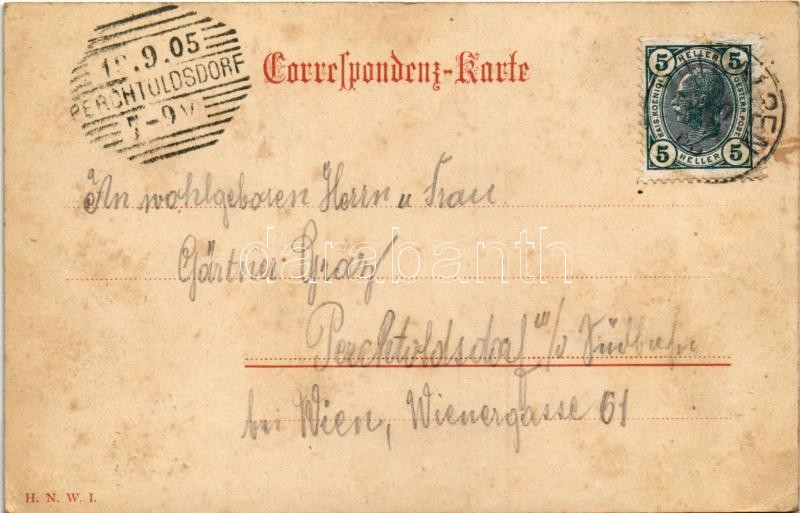 12.9.05
PERCHTOLDSDORF
7-9V
Correspondenz-Karte
5 HELLER 5
KAIS. KOENIGL. OESTERR. POST.
5 HELLER 5
An wohlgeboren Herrn u Frau
Gärtner Graf
Perchtoldsdorf a/d Südbahn
bei Wien, Wienergasse 61
darabanth
H. N. W. I.